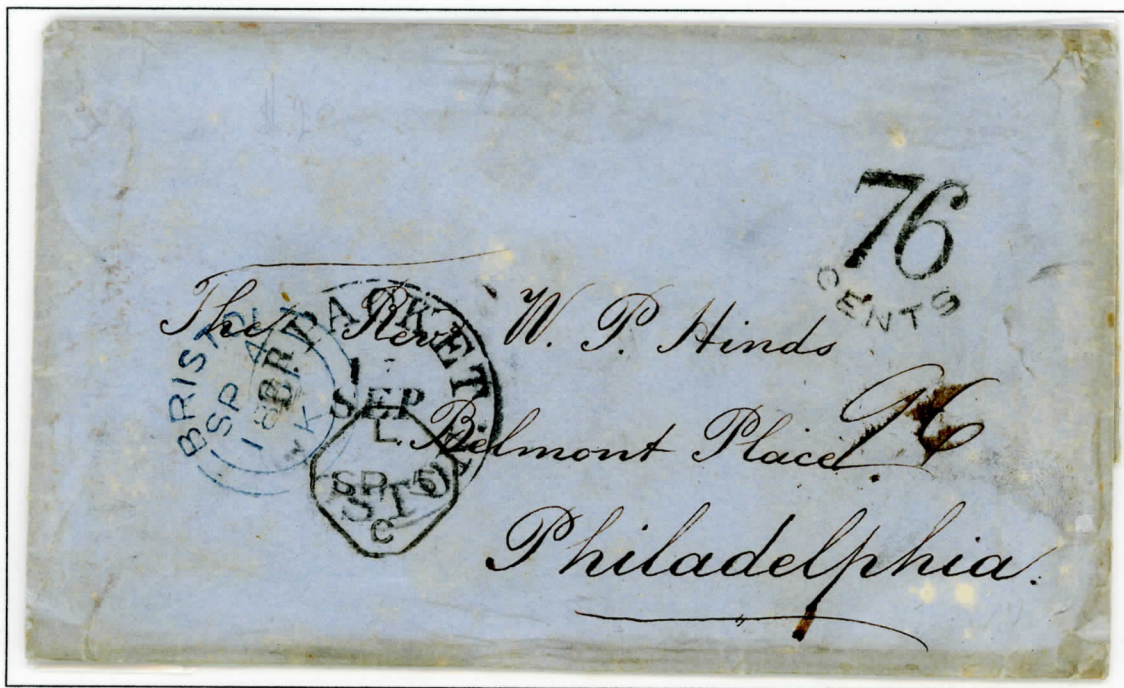 76
CENTS
The Rev W. P. Hinds
Belmont Place
Philadelphia.
BRISTOL
SP 4
BR. PACKET
SEP
L
SP 5
C